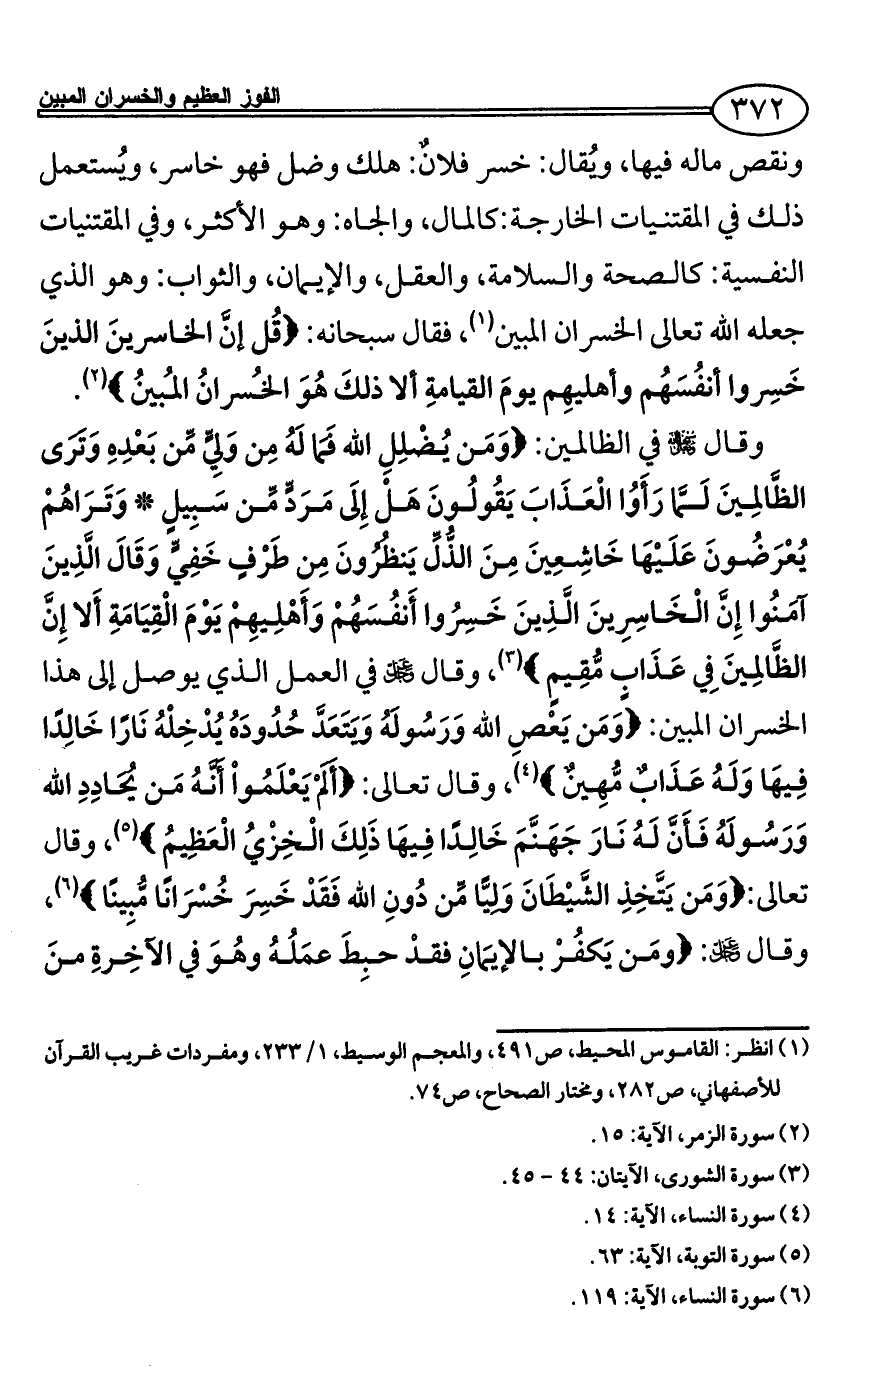 الفوز العظيم والخسران المبين
٣٧٢
ونقص ماله فيها، ويُقال: خسر فلانٌ: هلك وضل فهو خاسر، ويُستعمل
ذلك في المقتنيات الخارجة:كالمال، والجاه: وهو الأكثر، وفي المقتنيات
النفسية: كالصحة والسلامة، والعقل، والإيمان، والثواب: وهو الذي
جعله الله تعالى الخسران المبين(١)، فقال سبحانه: ﴿قُل إنَّ الخاسرينَ الذينَ
خَسِروا أنفُسَهُم وأهليهِم يومَ القيامةِ ألا ذلكَ هُوَ الخُسرانُ المُبينُ﴾(٢).
وقال ﷻ في الظالمين: ﴿وَمَن يُضْلِلِ الله فَمَا لَهُ مِن وَلِيٍّ مِّن بَعْدِهِ وَتَرَى
الظَّالِمِينَ لَـمَّا رَأَوُا الْعَذَابَ يَقُولُونَ هَلْ إِلَى مَرَدٍّ مِّن سَبِيلٍ * وَتَرَاهُمْ
يُعْرَضُونَ عَلَيْهَا خَاشِعِينَ مِنَ الذُّلِّ يَنظُرُونَ مِن طَرْفٍ خَفِيٍّ وَقَالَ الَّذِينَ
آمَنُوا إِنَّ الْخَاسِرِينَ الَّذِينَ خَسِرُوا أَنفُسَهُمْ وَأَهْلِيهِمْ يَوْمَ الْقِيَامَةِ أَلا إِنَّ
الظَّالِمِينَ فِي عَذَابٍ مُّقِيمٍ﴾(٣)، وقال ﷻ في العمل الذي يوصل إلى هذا
الخسران المبين: ﴿وَمَن يَعْصِ الله وَرَسُولَهُ وَيَتَعَدَّ حُدُودَهُ يُدْخِلْهُ نَارًا خَالِدًا
فِيهَا وَلَهُ عَذَابٌ مُّهِينٌ﴾(٤)، وقال تعالى: ﴿أَلَمْ يَعْلَمُواْ أَنَّهُ مَن يُحَادِدِ الله
وَرَسُولَهُ فَأَنَّ لَهُ نَارَ جَهَنَّمَ خَالِدًا فِيهَا ذَلِكَ الْخِزْيُ الْعَظِيمُ﴾(٥)، وقال
تعالى:﴿وَمَن يَتَّخِذِ الشَّيْطَانَ وَلِيًّا مِّن دُونِ الله فَقَدْ خَسِرَ خُسْرَانًا مُّبِينًا﴾(٦)،
وقال ﷻ: ﴿ومَن يَكفُرْ بالإيمَانِ فقدْ حبِطَ عملُهُ وهُوَ في الآخِرةِ منَ
(١) انظر: القاموس المحيط، ص٤٩١، والمعجم الوسيط، ١/ ٢٣٣، ومفردات غريب القرآن
للأصفهاني، ص٢٨٢، ومختار الصحاح، ص٧٤.
(٢) سورة الزمر، الآية: ١٥.
(٣) سورة الشورى، الآيتان: ٤٤ – ٤٥.
(٤) سورة النساء، الآية: ١٤.
(٥) سورة التوبة، الآية: ٦٣.
(٦) سورة النساء، الآية: ١١٩.